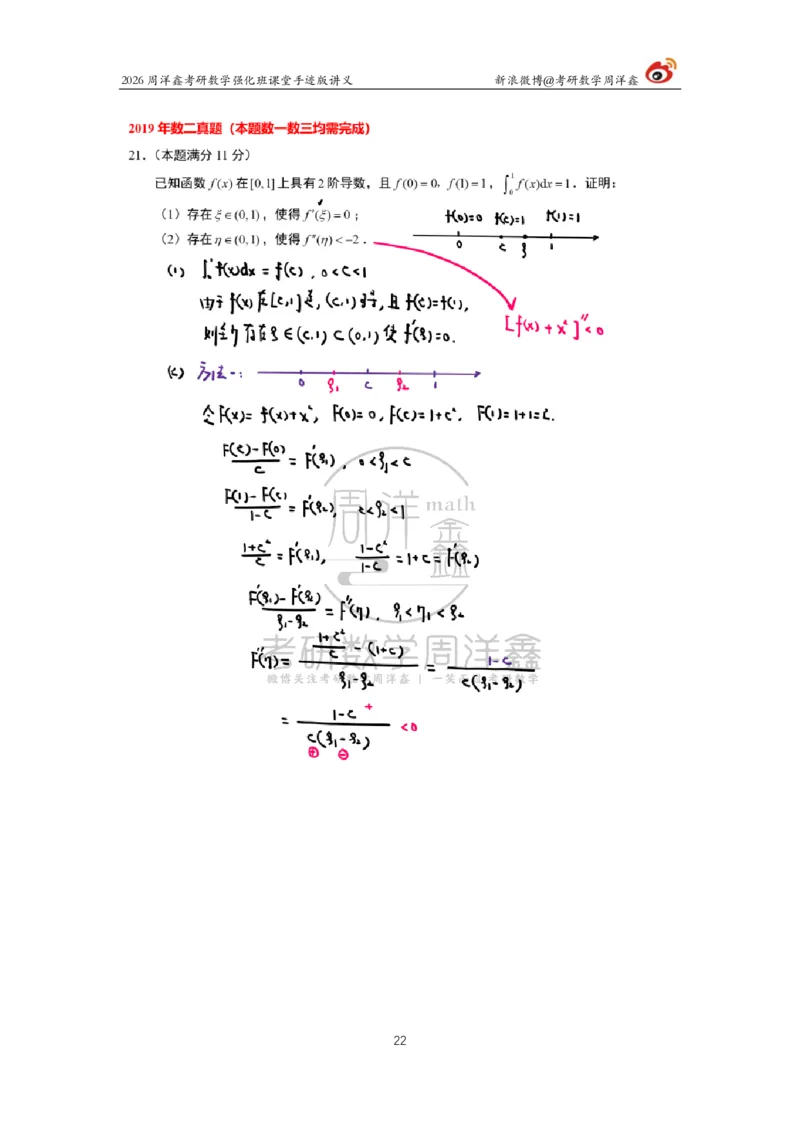 2026周洋鑫考研数学强化班课堂手迹版讲义 新浪微博@考研数学周洋鑫
2019年数二真题（本题数一数三均需完成）
21.（本题满分 11 分）
已知函数 f(x) 在 [0,1] 上具有 2 阶导数，且 f(0)=0，f(1)=1，∫₀¹ f(x)dx=1．证明：
（1）存在 ξ∈(0,1)，使得 f′(ξ)=0；
（2）存在 η∈(0,1)，使得 f″(η)<−2．
f(0)=0 f(c)=1 f(1)=1
0 c ξ 1
[f(x)+x²]″<0
(1) ∫₀¹ f(x)dx = f(c), 0<c<1
由于 f(x) 在 [c,1] 连, (c,1) 可导, 且 f(c)=f(1),
则至少存在 ξ∈(c,1)⊂(0,1) 使 f′(ξ)=0.
(2) 方法一:
0 ξ₁ c ξ₂ 1
令F(x)= f(x)+x², F(0)=0, F(c)=1+c², F(1)=1+1=2.
(F(c)−F(0))/c = F′(ξ₁), 0<ξ₁<c
(F(1)−F(c))/(1−c) = F′(ξ₂), c<ξ₂<1
(1+c²)/c = F′(ξ₁), (1−c²)/(1−c) = 1+c = F′(ξ₂)
(F′(ξ₁)−F′(ξ₂))/(ξ₁−ξ₂) = F″(η), ξ₁<η₁<ξ₂
F″(η) = ((1+c²)/c − (1+c))/(ξ₁−ξ₂) = (1−c)/(c(ξ₁−ξ₂))
= (1−c)/(c(ξ₁−ξ₂)) <0
+
⊕ ⊖
周洋鑫 math
考研数学周洋鑫
22